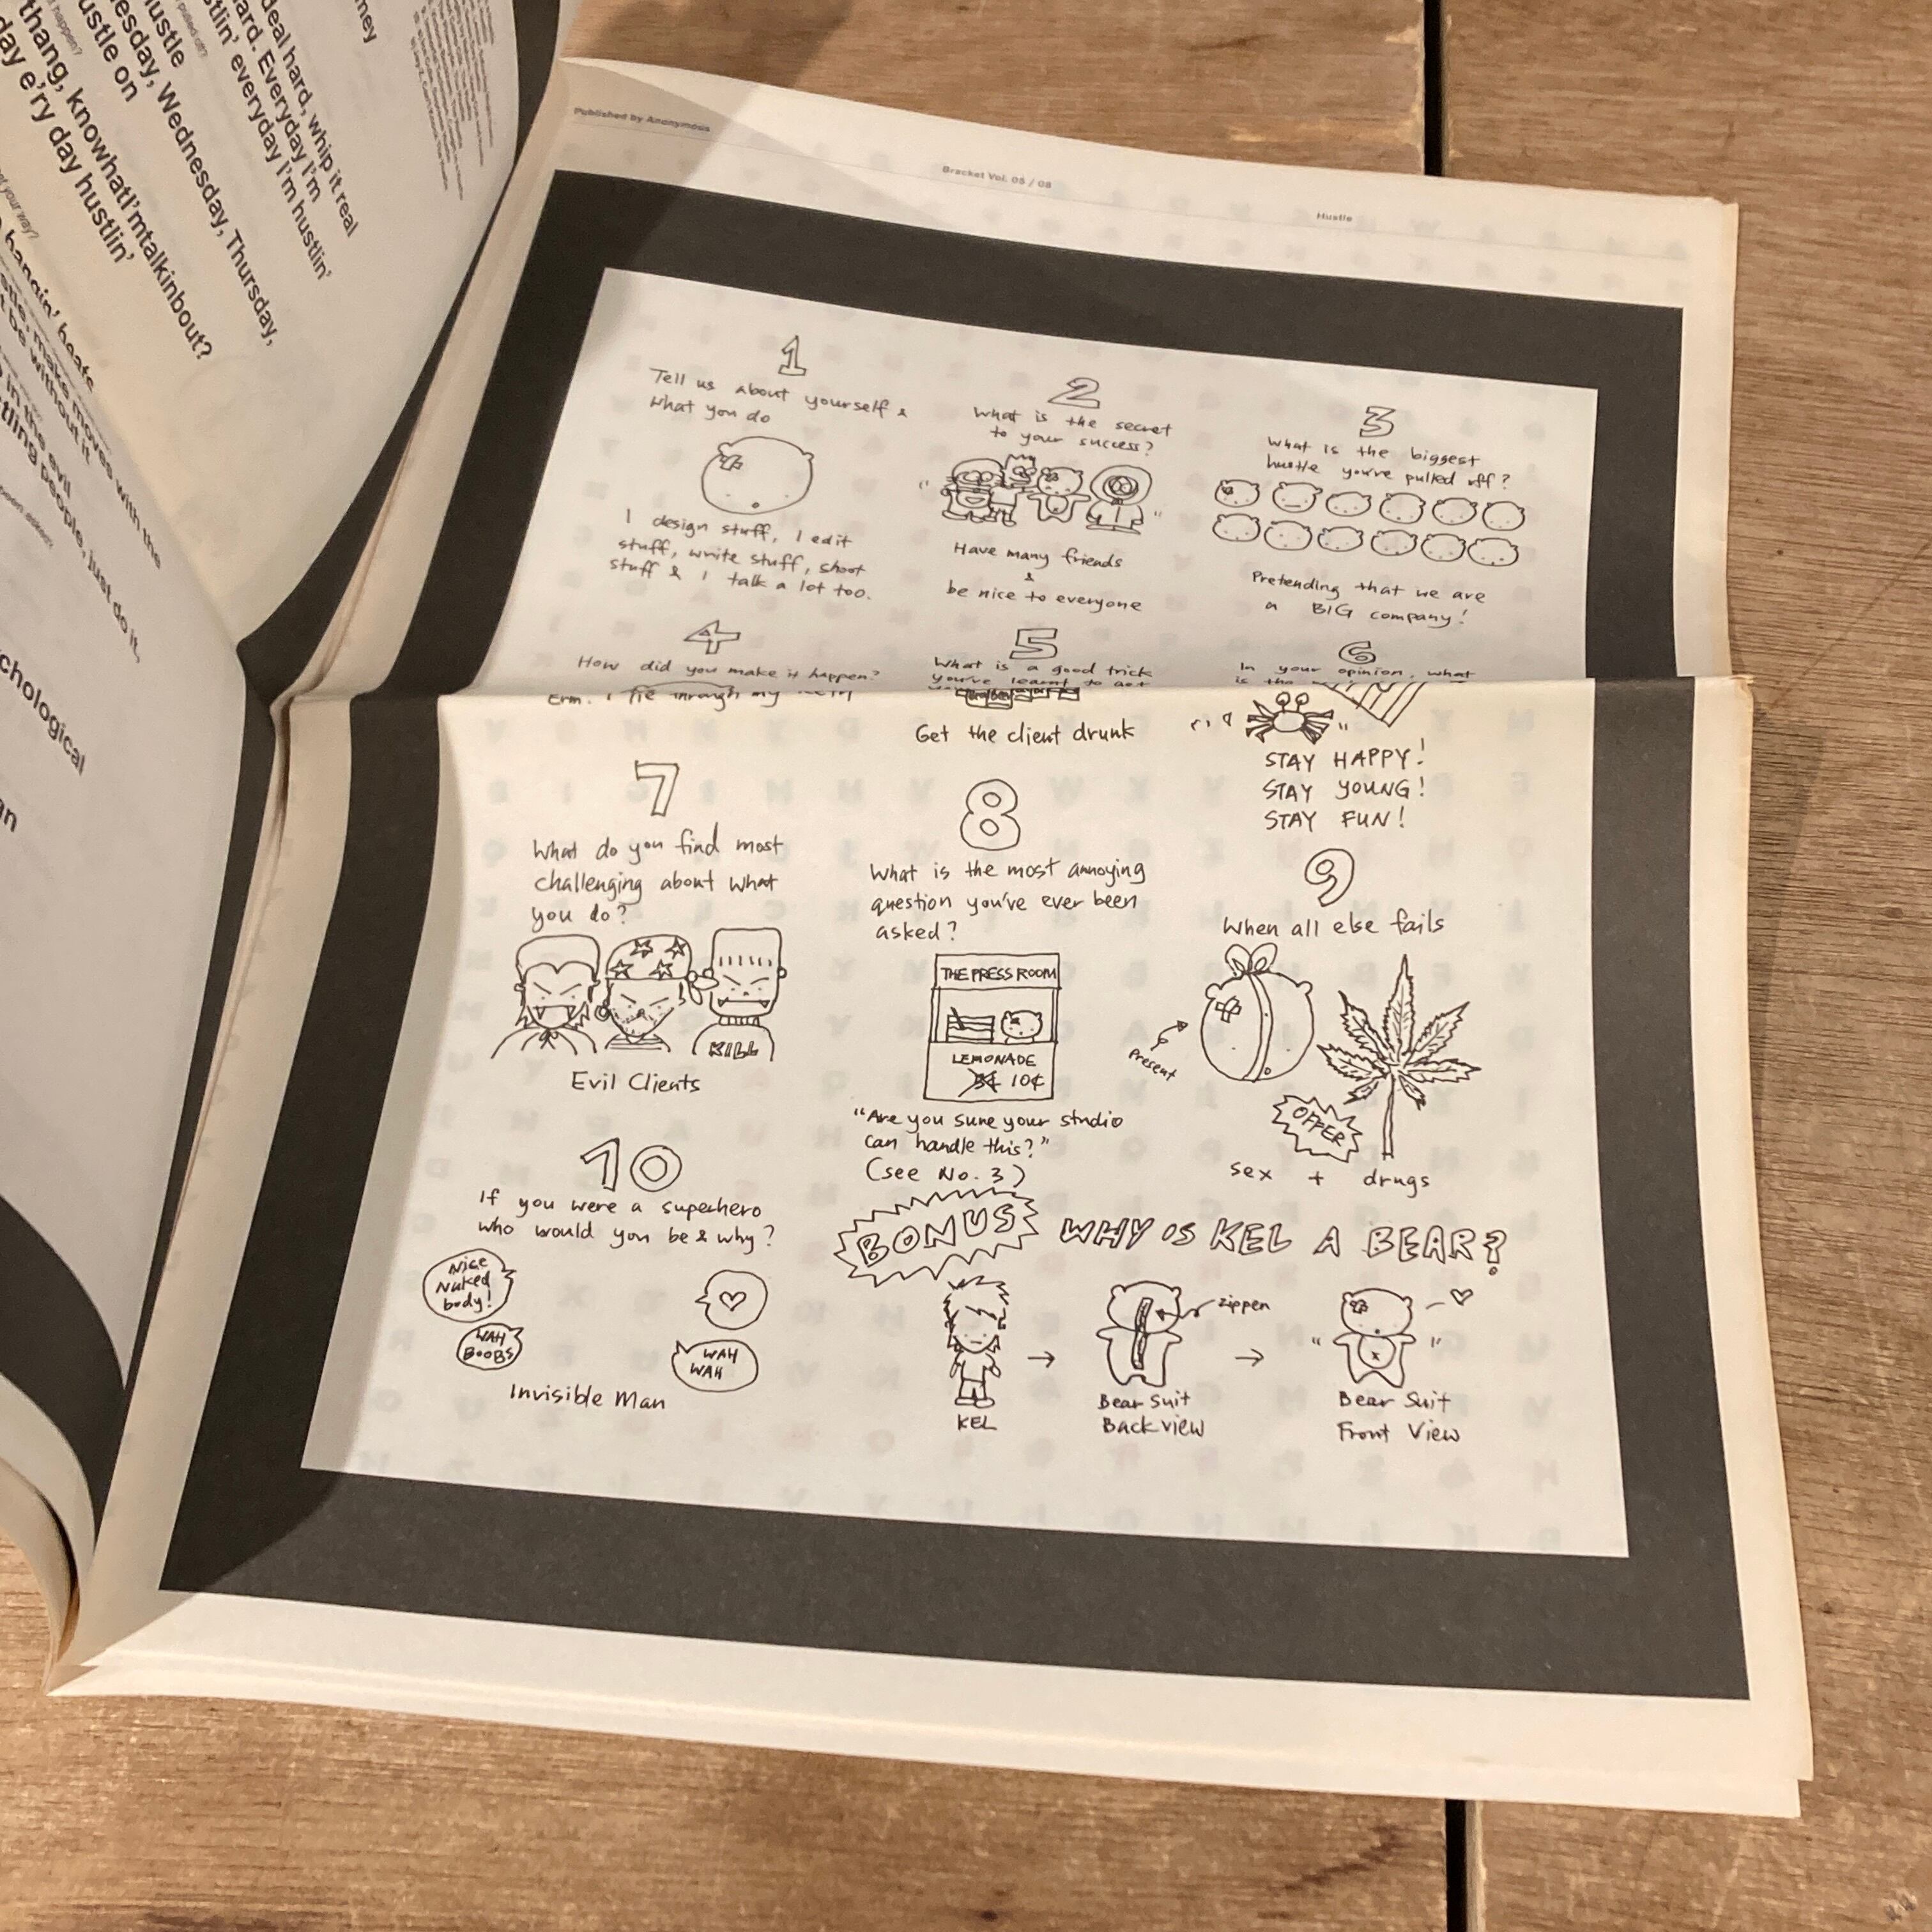 ney
deal hard, whip it real
hard. Everyday I'm
everyday I'm hustlin'
hustle
Wednesday, Thursday,
hustle on
happen?
thang, knowhatI'mtalkinbout?
day e'ry day hustlin'
your way?
hangin' beats
make moves with the
be without it
in the evil
people, just do it,
asked?
chological
an
Published by Anonymous
Bracket Vol. 05 / 08
Hustle
1
Tell us about yourself &
what you do
I design stuff, I edit
stuff, write stuff, shoot
stuff & I talk a lot too.
2
What is the secret
to your success?
Have many friends
&
be nice to everyone
3
What is the biggest
hustle you've pulled off?
Pretending that we are
a BIG company!
4
How did you make it happen?
Erm. I lie through my teeth
5
What is a good trick
you've learnt to get
Get the client drunk
6
In your opinion, what
is the
STAY HAPPY!
STAY YOUNG!
STAY FUN!
7
What do you find most
challenging about what
you do?
KILL
Evil Clients
8
What is the most annoying
question you've ever been
asked?
THE PRESS ROOM
LEMONADE
5¢ 10¢
"Are you sure your studio
can handle this?"
(see No. 3)
9
When all else fails
Present
OFFER
sex + drugs
10
If you were a superhero
who would you be & why?
Nice
Naked
body!
WAH
BOOBS
WAH
WAH
Invisible Man
BONUS WHY IS KEL A BEAR?
zippen
KEL
Bear Suit
Back view
Bear Suit
Front View